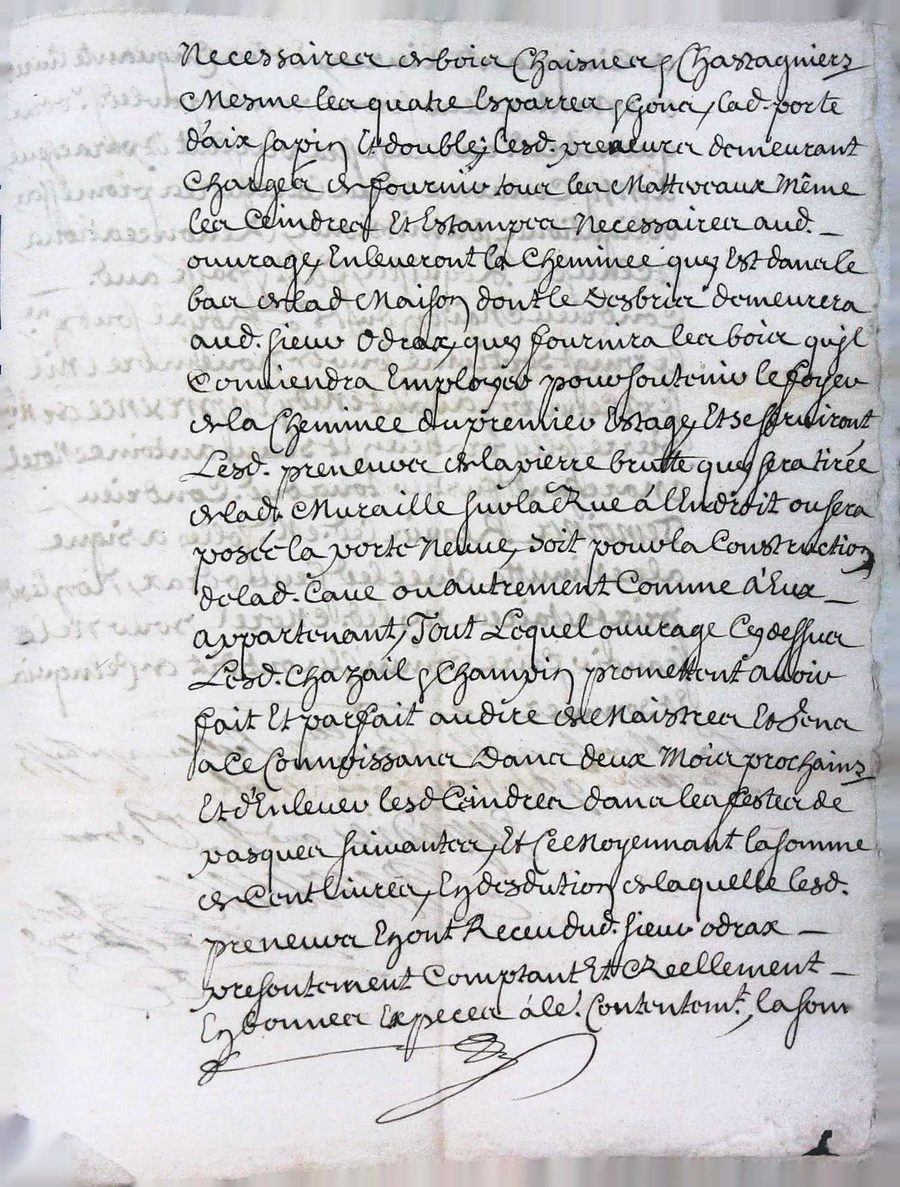 Necessaires de bois Chaisnes & Chastagniers
Mesme les quatre Esparres & Gons, lad. porte
d'aix sapin Et double; Lesd. preneurs demeurant
Chargés de fournir tous les Mattereaux Même
les Ceindres Et Estampes Necessaires aud.
ouvrage, Enleveront la Cheminée quy Est dans le
bas de lad Maison dont le Desbris demeurera
aud. sieur Odrax, quy fournira les bois qu'jl
Conviendra Employer pour soutenir le foyer
de la Cheminée du premier Estage, Et se serviront
Lesd. preneurs de la pierre brutte quy sera tirée
de lad. Muraille sur la Rue á l'Endroit ou sera
posée la porte Neuve, soit pour la Construction
de lad. Cave ou autrement Comme á Eux
appartenant, Tout Lequel ouvrage Cy dessus
Lesd. Chazail & Champin promettent avoir
fait Et parfait au dire de Maistres Et Gens
a Ce Connoissans Dans deux Mois prochains
Et d'Enlever lesd Ceindres dans les festes de
pasques suivantes, Et Ce Moyennant la somme
de Cent livres, En desdution de laquelle lesd.
preneurs En ont Receu dud. sieur odrax
presentement Comptant Et Reellement
En bonnes Especes á le.' Contentem.t, la som